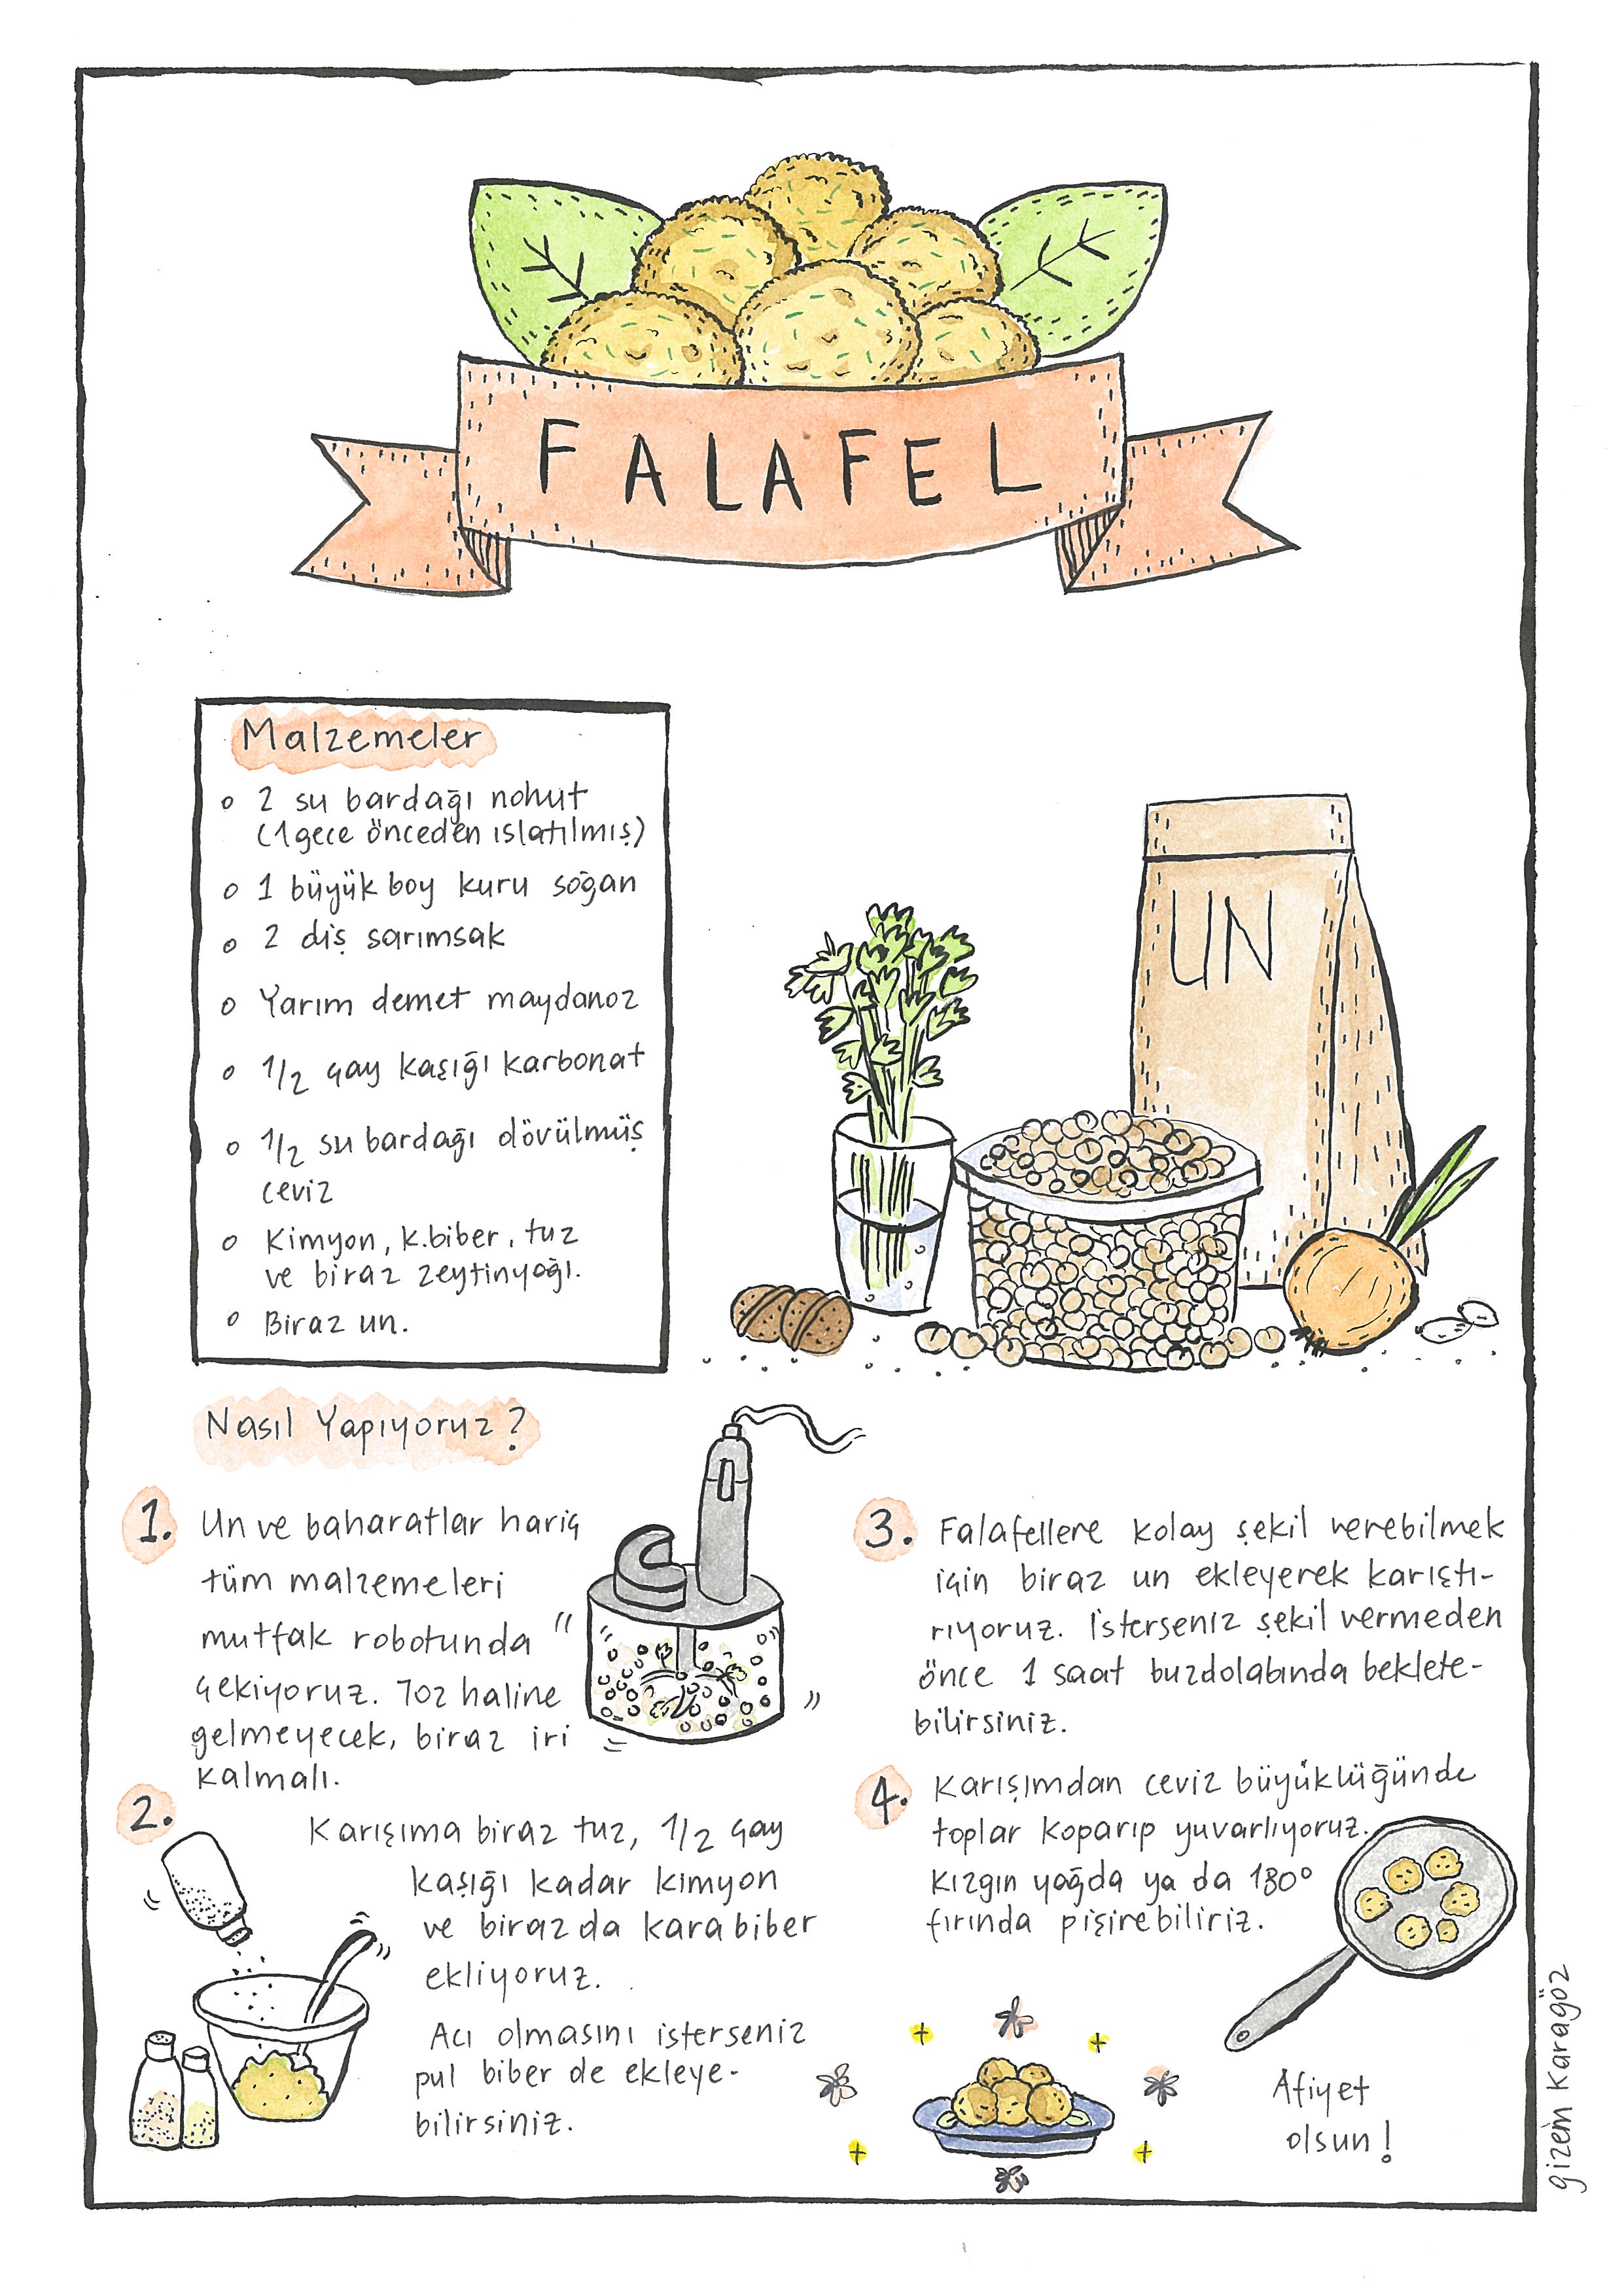 FALAFEL
Malzemeler
2 su bardağı nohut
(1 gece önceden ıslatılmış)
1 büyük boy kuru soğan
2 diş sarımsak
Yarım demet maydanoz
1/2 çay kaşığı karbonat
1/2 su bardağı dövülmüş
ceviz
Kimyon, k.biber, tuz
ve biraz zeytinyağı.
Biraz un.
UN
Nasıl Yapıyoruz?
1. Un ve baharatlar hariç
tüm malzemeleri
mutfak robotunda
çekiyoruz. Toz haline
gelmeyecek, biraz iri
kalmalı.
2. Karışıma biraz tuz, 1/2 çay
kaşığı kadar kimyon
ve biraz da karabiber
ekliyoruz.
Acı olmasını isterseniz
pul biber de ekleye-
bilirsiniz.
3. Falafellere kolay şekil verebilmek
için biraz un ekleyerek karıştı-
rıyoruz. İsterseniz şekil vermeden
önce 1 saat buzdolabında beklete-
bilirsiniz.
4. Karışımdan ceviz büyüklüğünde
toplar koparıp yuvarlıyoruz.
Kızgın yağda ya da 180°
fırında pişirebiliriz.
Afiyet
olsun!
gizem karagöz